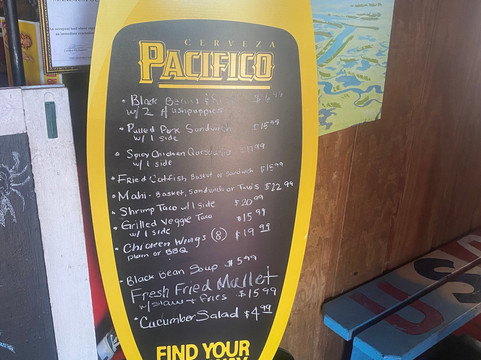 CERVEZA
PACIFICO
• Black Bean
w/2 Hushpuppies
• Pulled Pork Sandwich $15.99
w/1 side
• Spicy Chicken
w/1 side
• Fried Catfish, Basket or Sandwich $15.99
• Mahi - Basket, Sandwich or Taco's $22.99
• Shrimp Taco w/1 side $20.99
• Grilled Veggie Taco $15.99
w/1 side
• Chicken Wings (8) $19.99
Plain or BBQ
• Black bean Soup $5.99
Fresh Fried Mullet
w/slaw + fries $15.99
• Cucumber Salad $4.99
FIND YOUR